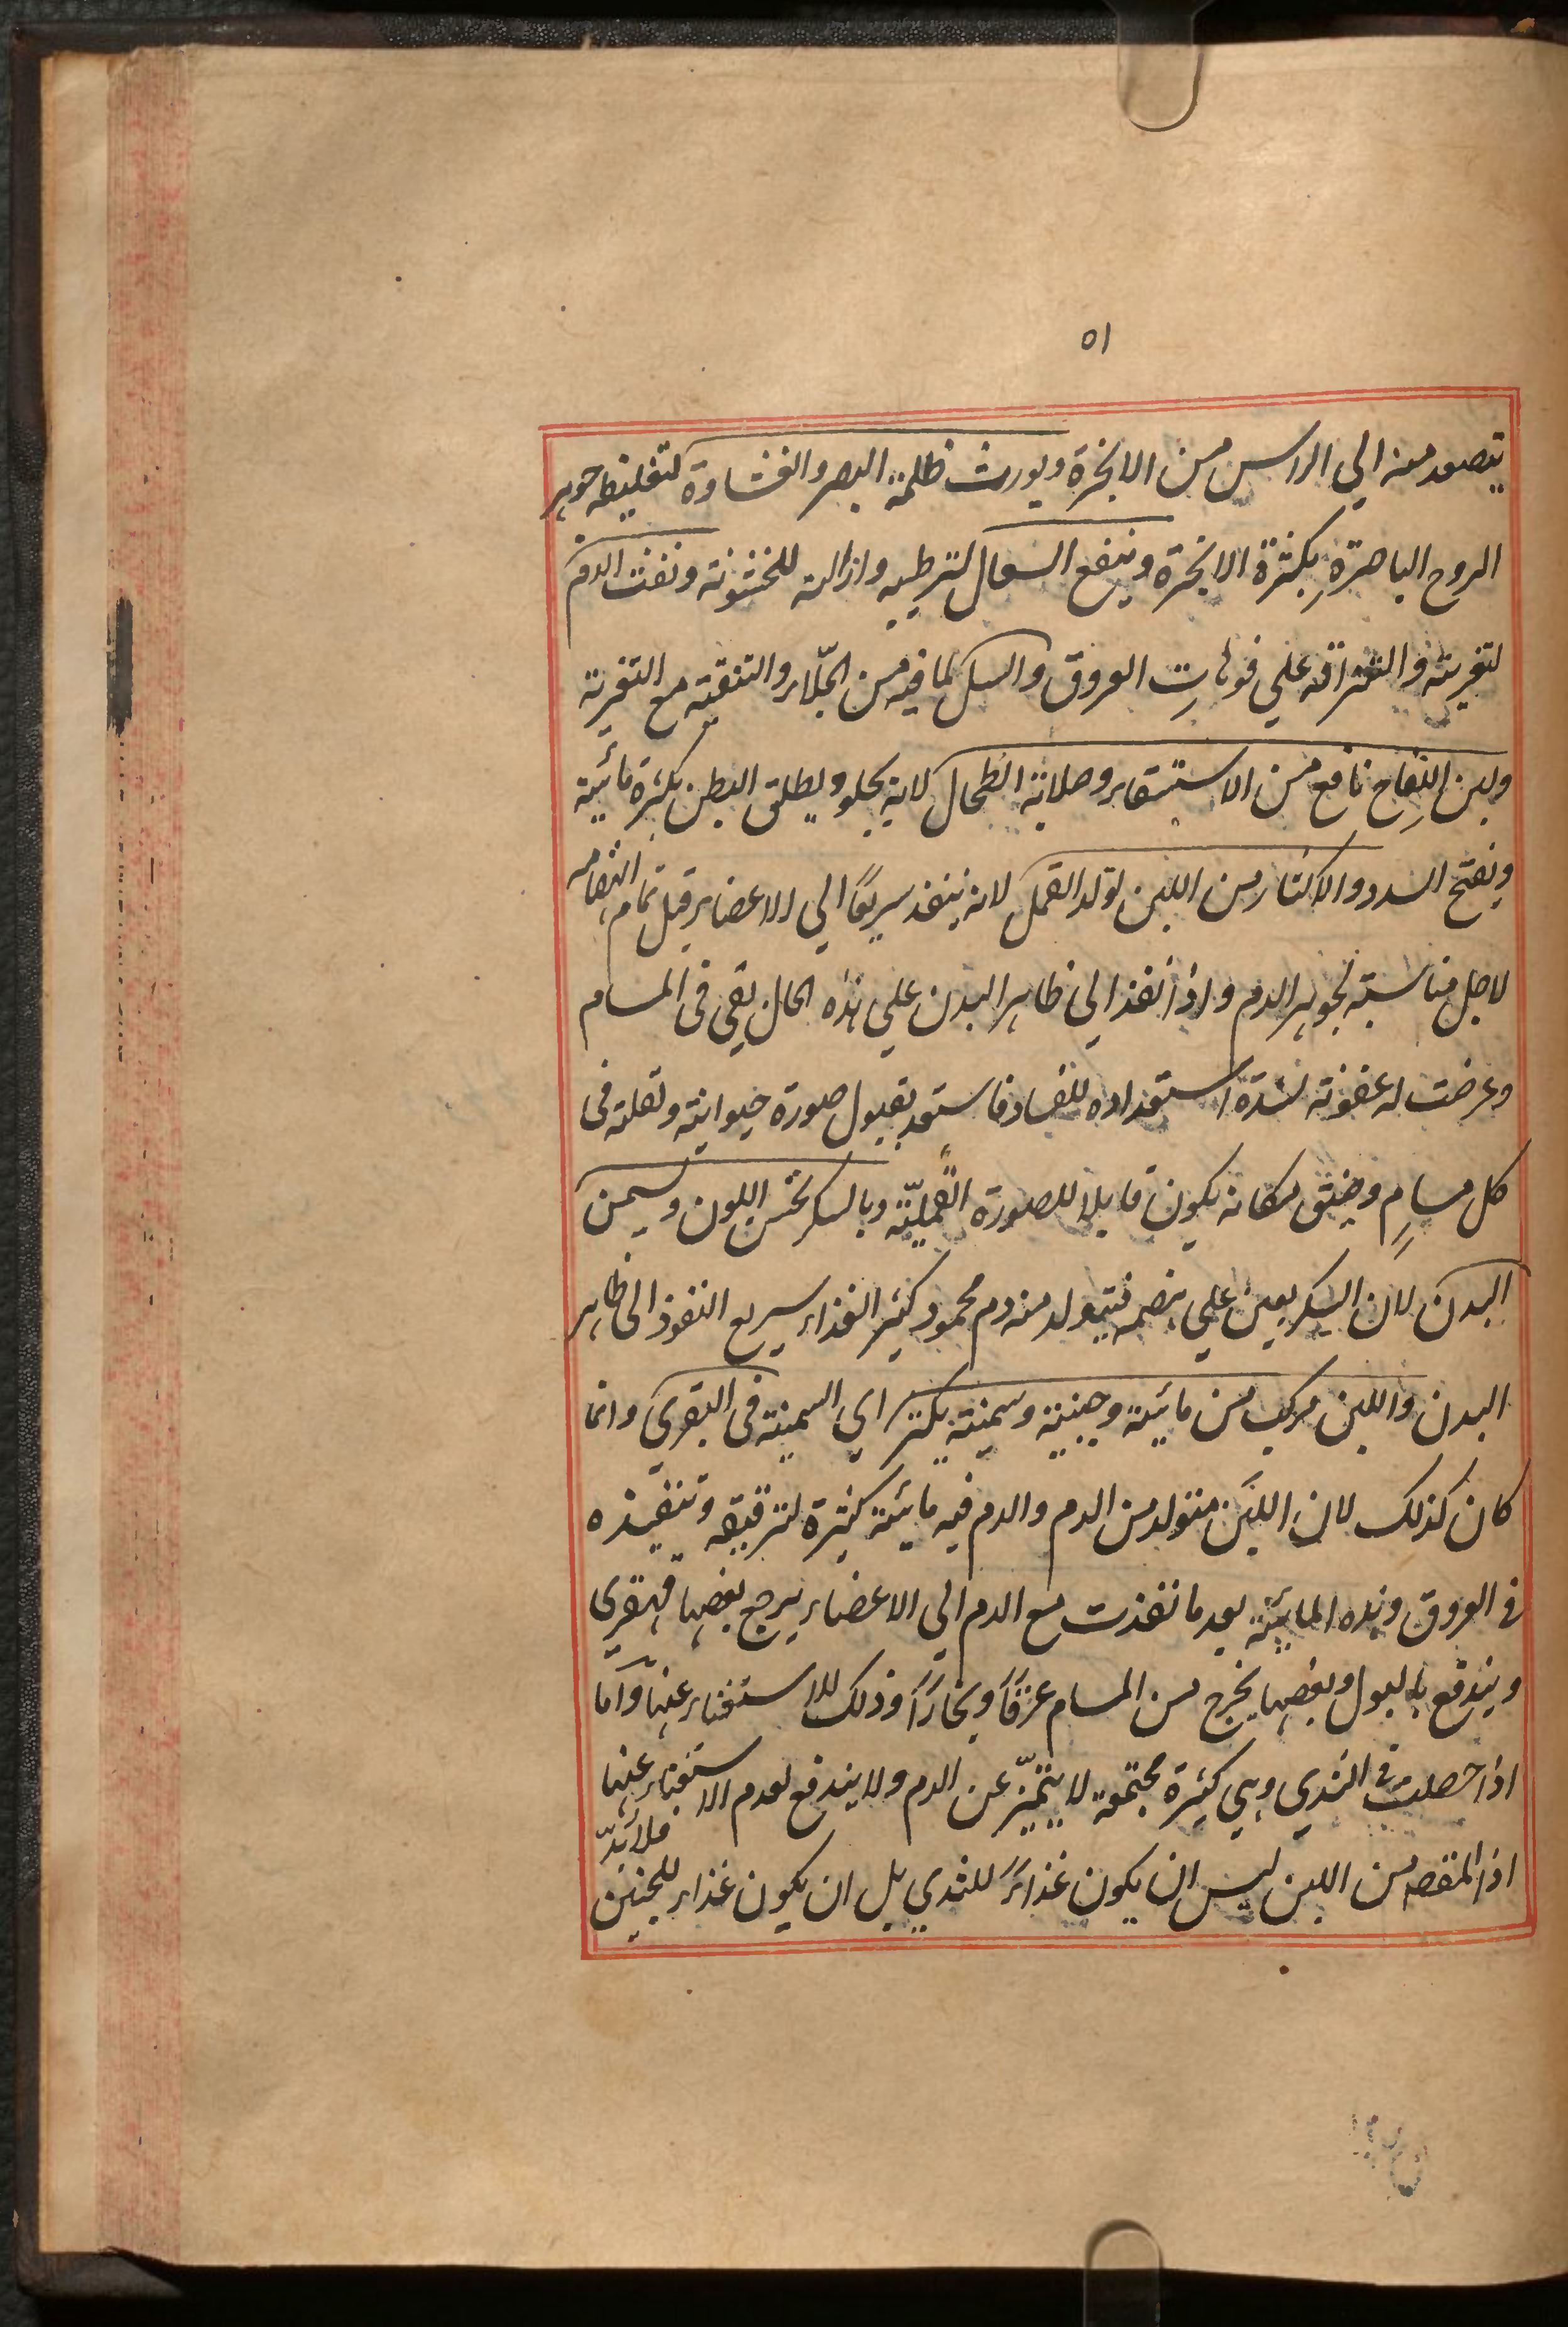 ٥١
يتصعد منه الي الراس من الابخرة ويورث ظلمة البصر والغشاوة لتغليظه جوهر
الروح الباصرة بكثرة الابخرة وينفع السعال لترطيبه وازالته للخشونة ونفث الدم
لتغريته والتزاقه علي فوهات العروق والسل لما فيه من الجلاء والتنقية مع التغرية
ولبن اللقاح نافع من الاستسقاء وصلابة الطحال لانه يجلو ويطلق البطن بكثرة مائية
ويفتح السدد والاكثار من اللبن يولد القمل لانه ينفذ سريعًا الي الاعضاء قبل تمام انهضامه
لاجل مناسبته لجوهر الدم واذا نفذ الي ظاهر البدن علي هذه الحال بقي في المسام
وعرضت له عفونة لشدة استعداده للفساد فاستعد بقبول صورة حيوانية ولقلته في
كل مسامٍ وضيق مكانه يكون قابلا للصورة القمليّة وبالسكر يحسن اللون ويسمن
البدن لان السكر يعين علي هضمه فيتولد منه دم محمود كثير الغذاء سريع النفوذ الى ظاهر
البدن واللبن مركب من مائية وجبنية وسمنية يكثر اي السمنية في البقري وانما
كان كذلك لان اللبن متولد من الدم والدم فيه مائية كثيرة لترقيقه وتنفيذه
في العروق وهذه المائية بعد ما نفذت مع الدم الي الاعضاء يرجع بعضها قهقري
ويندفع بالبول وبعضها يخرج من المسام عرقًا وبخارًا وذلك للاستغناء عنها واما
اذا حصلت في الثدي وهي كثيرة مجتمعة لا يتميّز عن الدم ولا يندفع لعدم الاستغناء عنها
فلابدّ
اذ المقصد من اللبن ليس ان يكون غذاءً للثدي بل ان يكون غذاء للجنين